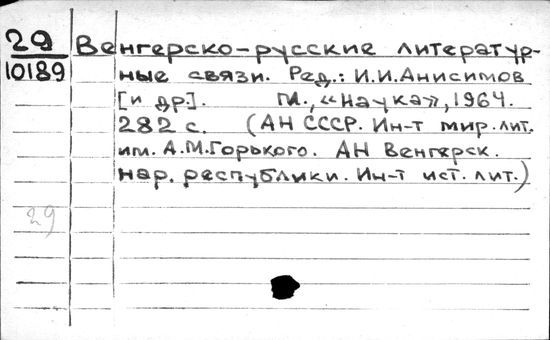 29 Венгерско-русские литератур-
10189 ные связи. Ред.: И.И.Анисимов
[и др]. М., «Наука», 1964.
282 с. (АН СССР. Ин-т мир. лит.
им. А.М.Горького. АН Венгерск.
нар. республики. Ин-т ист. лит.)
29